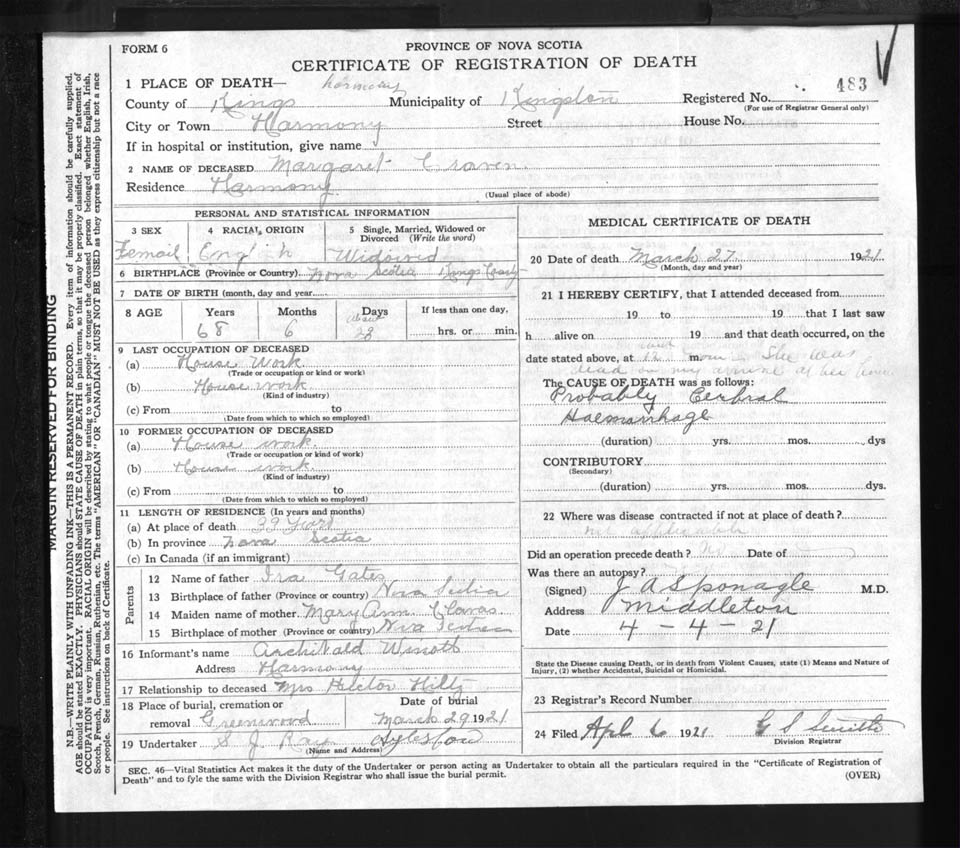 FORM 6
PROVINCE OF NOVA SCOTIA
CERTIFICATE OF REGISTRATION OF DEATH
483
1 PLACE OF DEATH— harmony
County of Kings Municipality of Kingston Registered No.
(For use of Registrar General only)
City or Town Harmony Street House No.
If in hospital or institution, give name
2 NAME OF DECEASED Margaret Craven
Residence Harmony
(Usual place of abode)
PERSONAL AND STATISTICAL INFORMATION
3 SEX 4 RACIAL ORIGIN 5 Single, Married, Widowed or Divorced (Write the word)
Femail English Widowed
6 BIRTHPLACE (Province or Country) Nova Scotia Kings County
7 DATE OF BIRTH (month, day and year)
8 AGE Years Months Days If less than one day,
68 6 about 23 hrs. or min.
9 LAST OCCUPATION OF DECEASED
(a) House Work
(Trade or occupation or kind or work)
(b) House work
(Kind of industry)
(c) From to
(Date from which to which so employed)
10 FORMER OCCUPATION OF DECEASED
(a) House work
(Trade or occupation or kind of work)
(b) House work
(Kind of industry)
(c) From to
(Date from which to which so employed)
11 LENGTH OF RESIDENCE (In years and months)
(a) At place of death 39 Years
(b) In province Nova Scotia
(c) In Canada (if an immigrant)
Parents
12 Name of father Ira Gates
13 Birthplace of father (Province or country) Nova Scotia
14 Maiden name of mother Mary Ann
15 Birthplace of mother (Province or country) Nova Scotia
16 Informant's name Archibald
Address Harmony
17 Relationship to deceased Mrs Hector Hiltz
18 Place of burial, cremation or Date of burial
removal Greenwood March 29 1921
19 Undertaker S J Ray Aylesford
(Name and Address)
MEDICAL CERTIFICATE OF DEATH
20 Date of death March 27 1921
(Month, day and year)
21 I HEREBY CERTIFY, that I attended deceased from
19 to 19 that I last saw
h alive on 19 and that death occurred, on the
date stated above, at 12 m. She was
dead on my arrival at her home
The CAUSE OF DEATH was as follows:
Probably Cerbral
Haemorrhage
(duration) yrs. mos. dys
CONTRIBUTORY
(Secondary)
(duration) yrs. mos. dys.
22 Where was disease contracted if not at place of death?
not applicable
Did an operation precede death? No Date of
Was there an autopsy?
(Signed) J A Sponagle M.D.
Address Middleton
Date 4 - 4 - 21
State the Disease causing Death, or in death from Violent Causes, state (1) Means and Nature of
Injury, (2) whether Accidental, Suicidal or Homicidal.
23 Registrar's Record Number
24 Filed Apl 6 1921 G S Smith
Division Registrar
SEC. 46—Vital Statistics Act makes it the duty of the Undertaker or person acting as Undertaker to obtain all the particulars required in the "Certificate of Registration of
Death" and to fyle the same with the Division Registrar who shall issue the burial permit.
(OVER)
MARGIN RESERVED FOR BINDING
N.B.—WRITE PLAINLY WITH UNFADING INK—THIS IS A PERMANENT RECORD. Every item of information should be carefully supplied.
AGE should be stated EXACTLY. PHYSICIANS should STATE CAUSE OF DEATH in plain terms, so that it may be properly classified. Exact statement of
OCCUPATION is very important. RACIAL ORIGIN will be described by stating to what people or tongue the deceased person belonged whether English, Irish,
Scotch, French, German, Russian, Ruthenian, etc. The terms "AMERICAN" or "CANADIAN" MUST NOT BE USED as they express citizenship but not a race
or people. See instructions on back of Certificate.